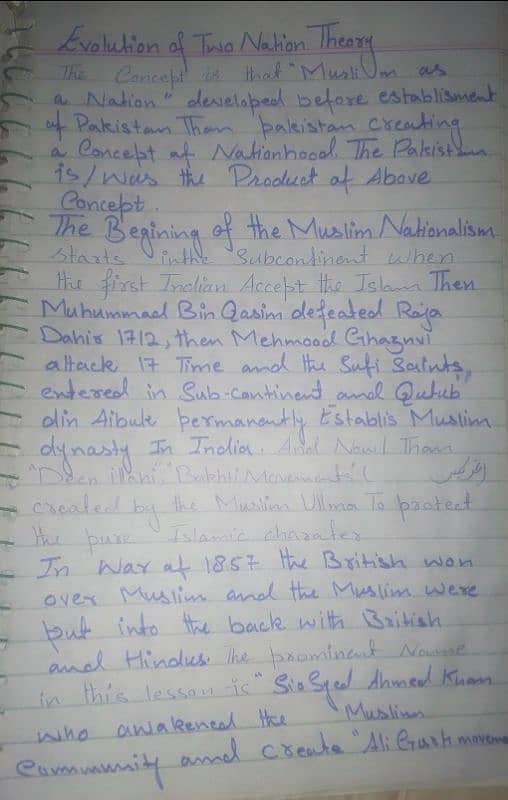 Evolution of Two Nation Theory
The Concept is that "Muslim as
a Nation" developed before establisment
of Pakistan Than pakistan creating
a Concept of Nationhood. The Pakistan
is/was the Product of Above
Concept.
The Begining of the Muslim Nationalism
starts inthe Subcontinent when
the first Indian Accept the Islam Then
Muhummad Bin Qasim defeated Raja
Dahir 1712, then Mehmood Ghaznvi
attack 17 Time and the Sufi Saints,
entered in Sub-continent and Qutub
din Aibuk permanently Establis Muslim
dynasty In India. And Than
"Deen illahi" "Bakhti Movements" (
created by the Muslim Ullma To protect
the pure Islamic charater
In War of 1857 the British won
over Muslim and the Muslim were
put into the back with British
and Hindus. The prominent Name
in this lesson is "Sir Syed Ahmed Khan
who awakened the Muslim
Community and create "Ali Garh movem